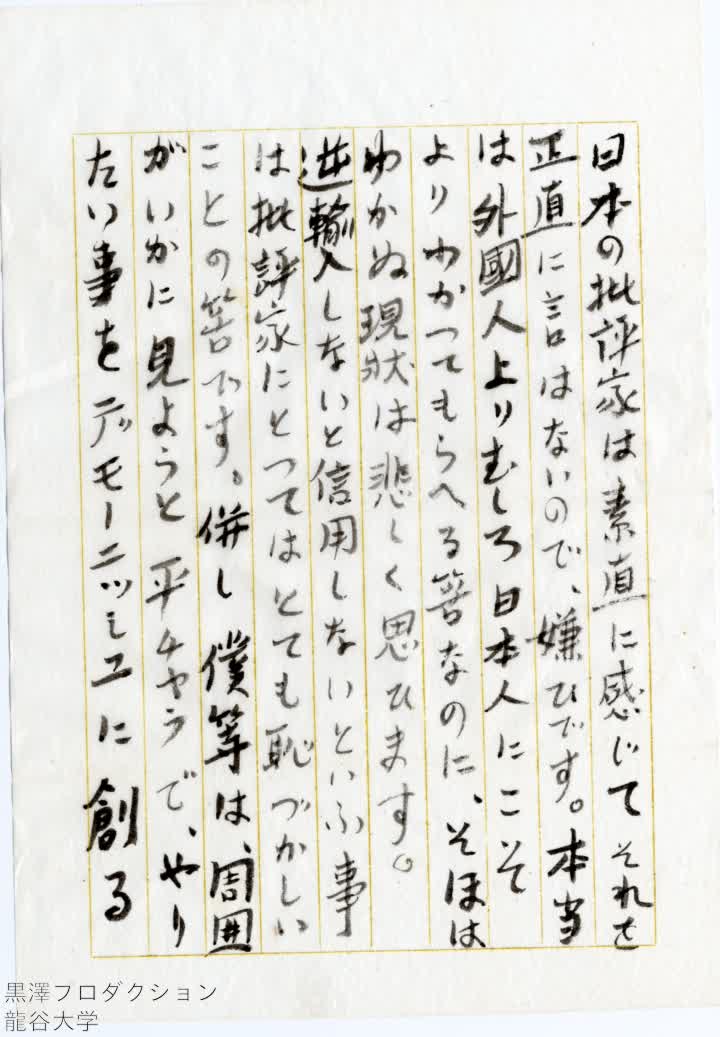 日本の批評家は素直に感じてそれを
正直に言はないので、嫌ひです。本当
は外國人よりむしろ日本人にこそ
よりわかつてもらへる筈なのに、そほは
わかぬ現状は悲しく思ひます。
逆輸入しないと信用しないといふ事
は批評家にとつてはとても恥づかしい
ことの筈です。併し僕等は、周囲
がいかに見ようと平チャラで、やり
たい事をデモーニッシュに創る
黒澤プロダクション
龍谷大学